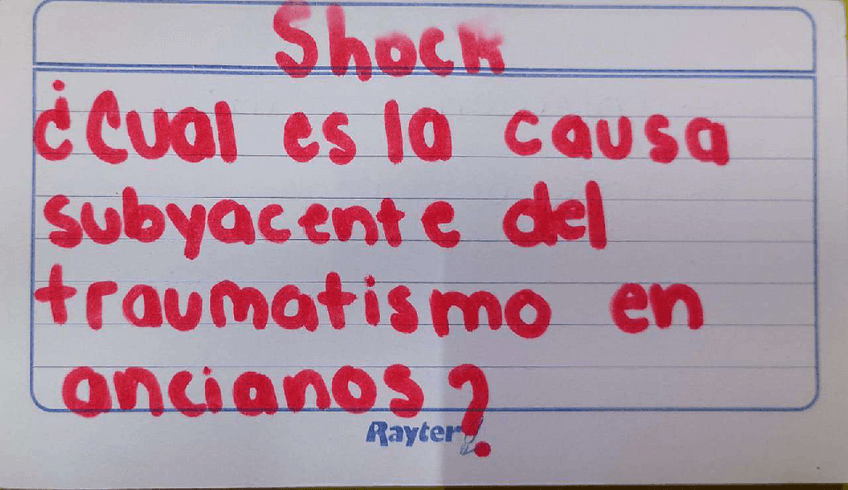 Shock
¿Cual es la causa
subyacente del
traumatismo en
ancianos?
Rayter